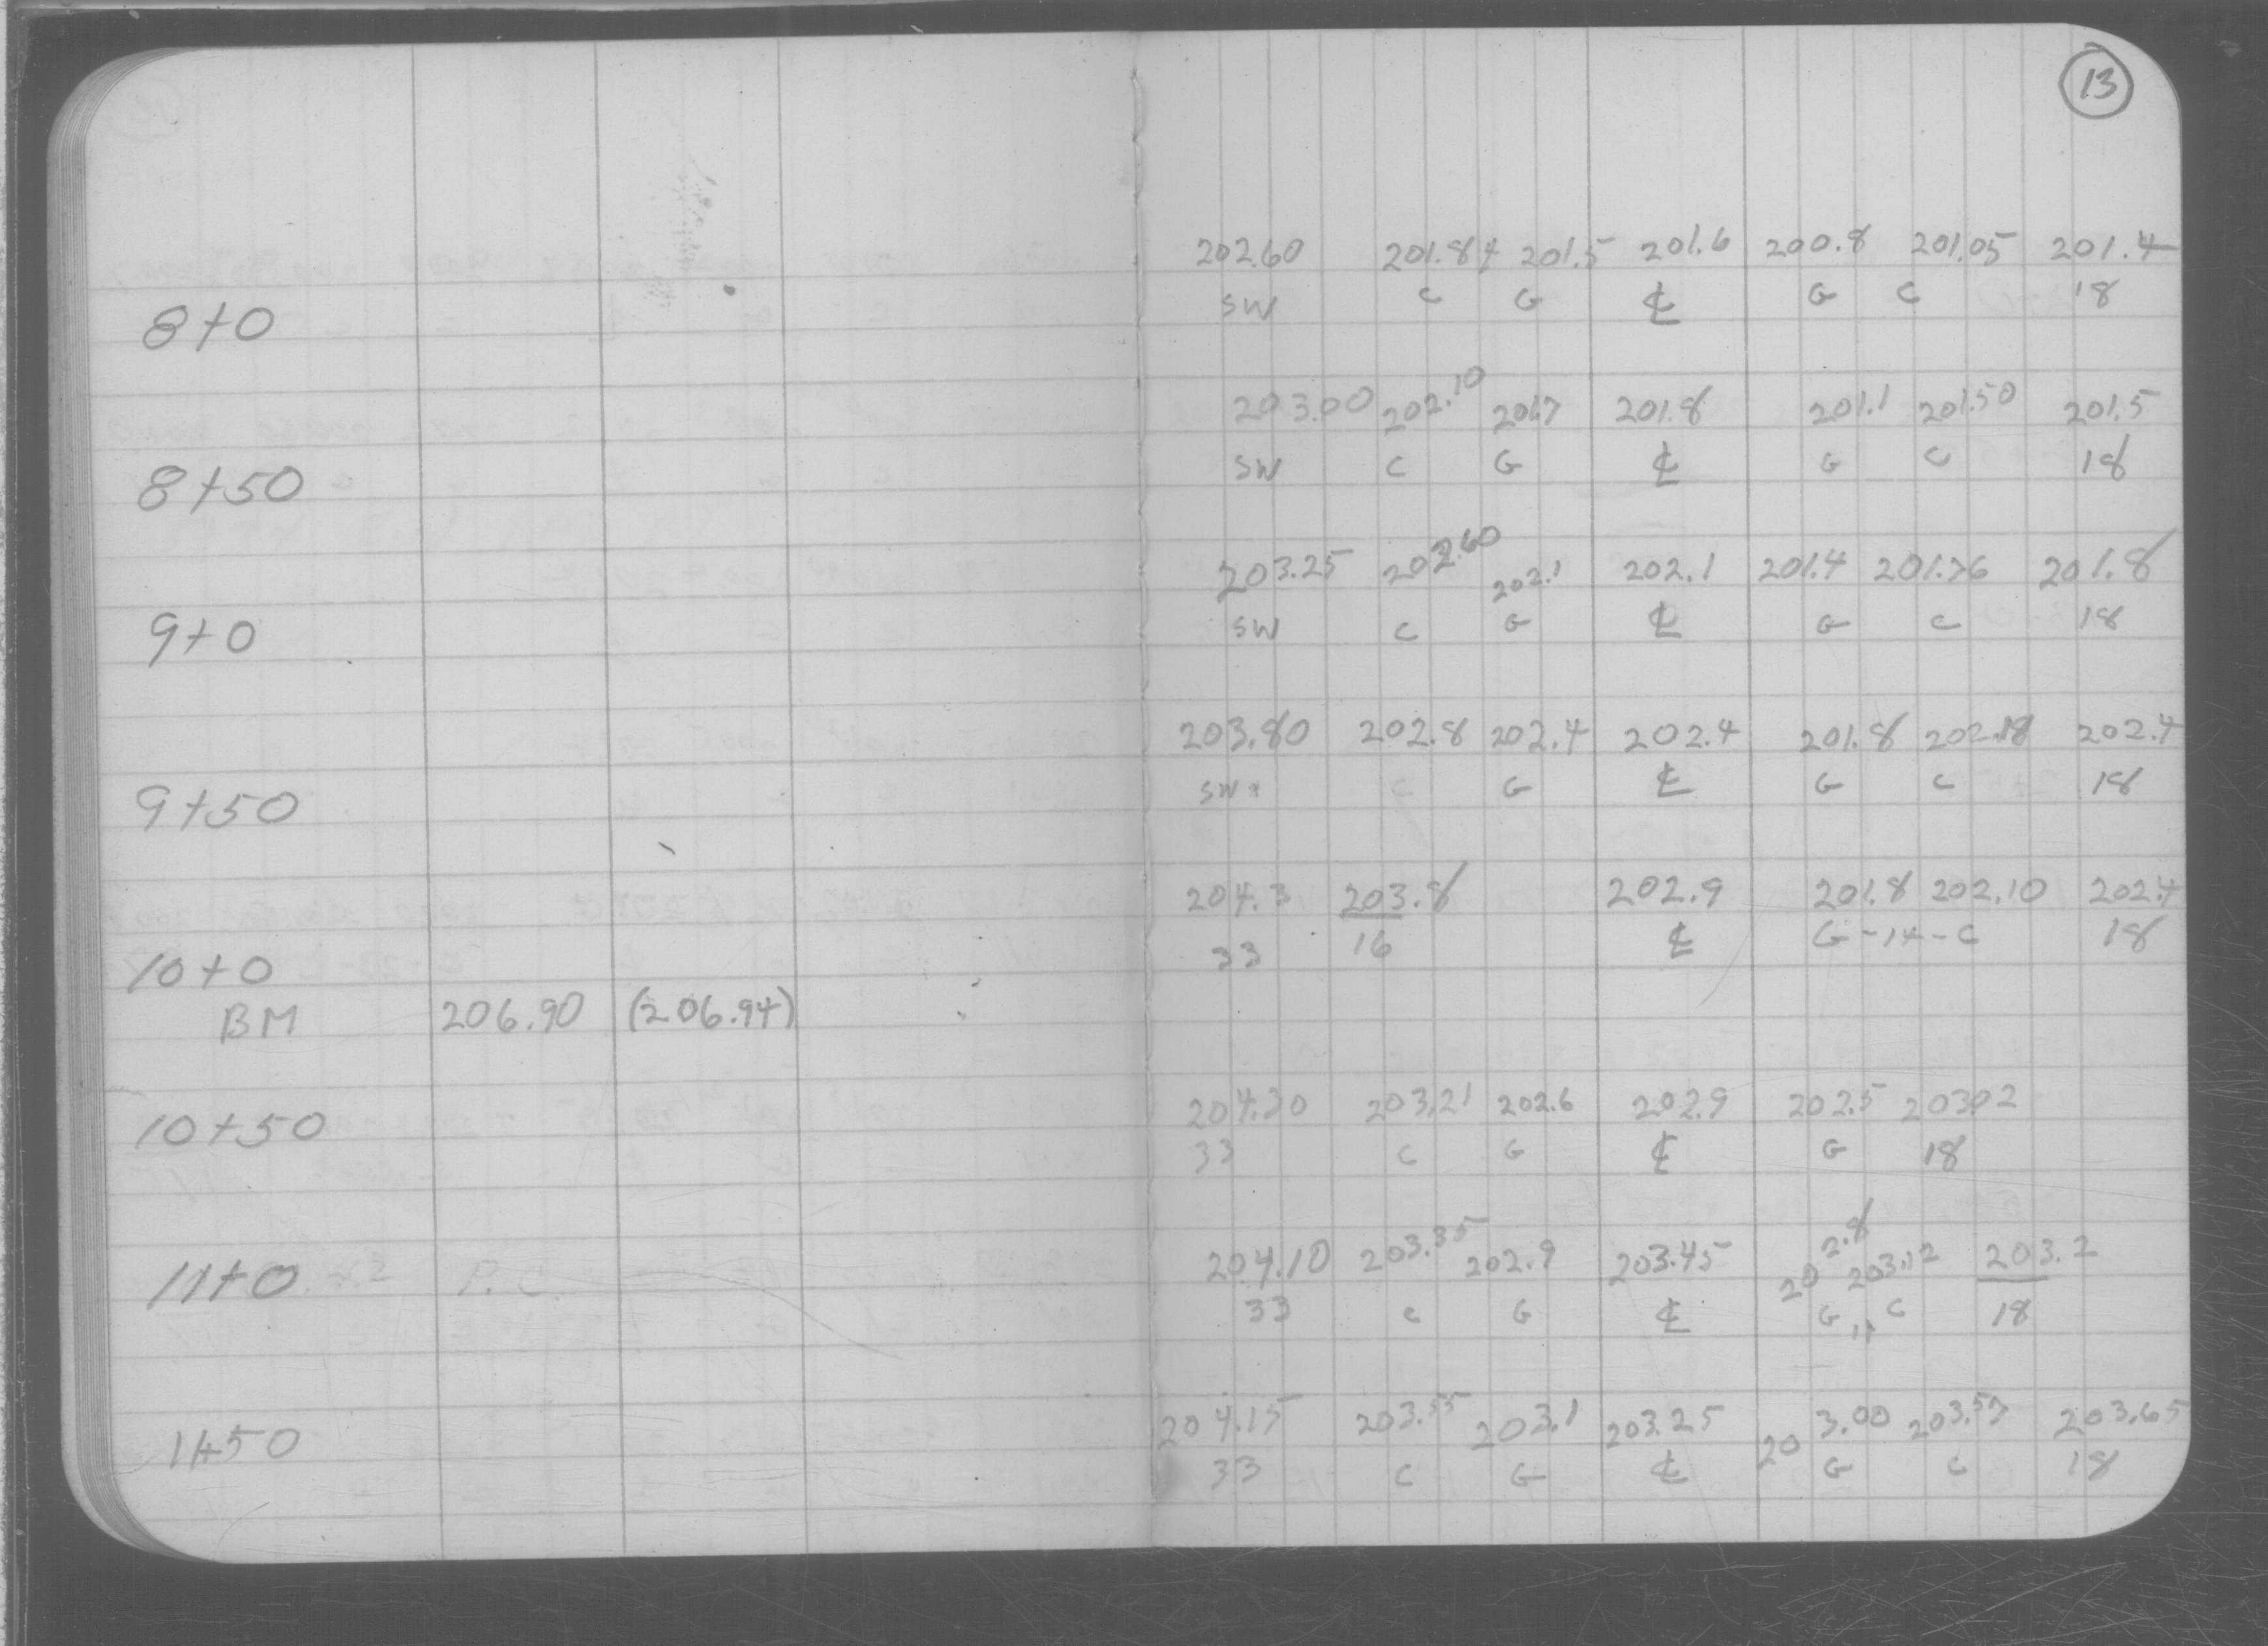 13
202.60 201.84 201.5 201.6 200.8 201.05 201.4
8+0 SW C G ℄ G C 18
203.00 202.10 201.7 201.8 201.1 201.50 201.5
8+50 SW C G ℄ G C 18
203.25 202.60 202.1 202.1 201.4 201.76 201.8
9+0 SW C G ℄ G C 18
203.80 202.8 202.4 202.4 201.8 202.18 202.4
9+50 SW C G ℄ G C 18
204.3 203.8 202.9 201.8 202.10 202.4
10+0 33 16 ℄ G-14-C 18
BM 206.90 (206.94)
204.30 203.21 202.6 202.9 202.5 203.02
10+50 33 C G ℄ G 18
204.10 203.35 202.9 203.45 202.8 203.12 203.2
11+0 P.C. 33 C G ℄ G 11 C 18
204.15 203.55 203.1 203.25 203.00 203.57 203.65
11+50 33 C G ℄ G C 18